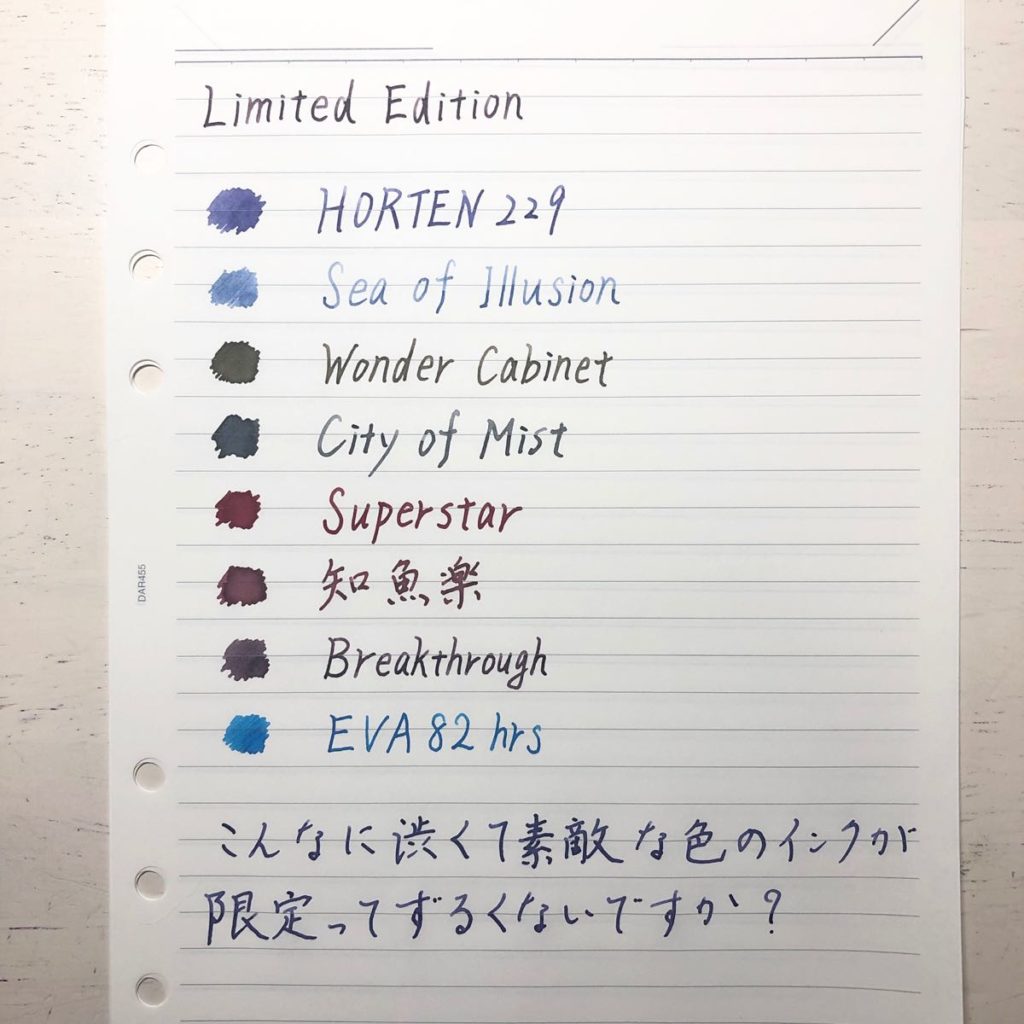 Limited Edition
HORTEN 229
Sea of Illusion
Wonder Cabinet
City of Mist
Superstar
知魚楽
Breakthrough
EVA 82 hrs
こんなに渋くて素敵な色のインクが
限定ってずるくないですか？
DAR455